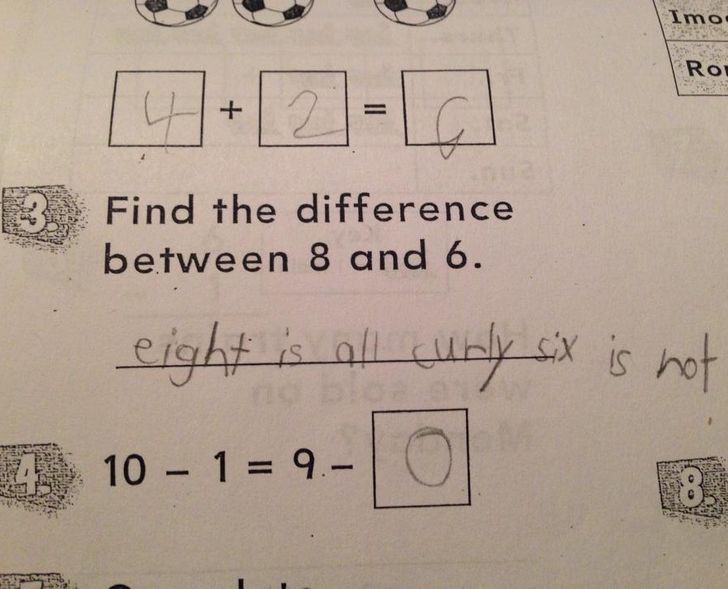 Imo
Ro
4 + 2 = 6
3. Find the difference
between 8 and 6.
eight is all curly six is not
4. 10 - 1 = 9 - 0
8.